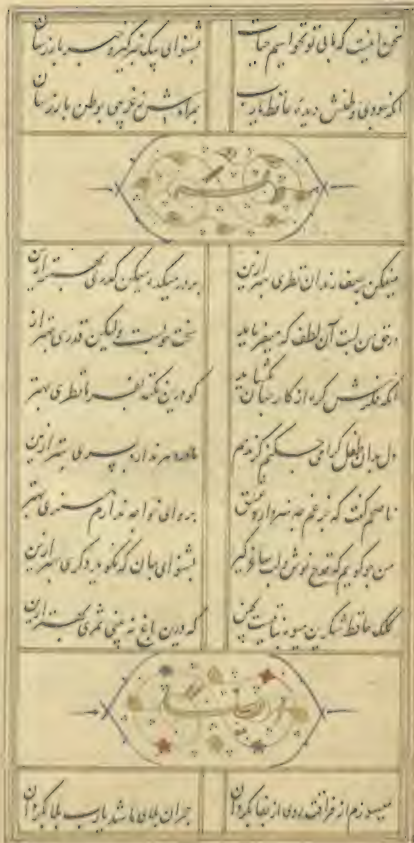 سخن اینست که ما بی تو نخواهیم حیات بشنو ای پیک خبرگیر و خبر بازرسان
آنکه بودی وطنش دیده حافظ یارب بمرادش ز غریبی بوطن بازرسان
میفکن بر صف رندان نظری بهتر ازین بر در میکده میکن گذری بهتر ازین
در حق من لبت آن لطف که میفرماید سخت خوبست ولیکن قدری بهتر از
آنکه فکرش گره از کار جهان بگشاید گو درین نکته بفرما نظری بهتر
دل بدان طفل گرامی چکنم گر ندهم مادر دهر ندارد پسری بهتر ازین
ناصحم گفت که جز غم چه هنر دارد عشق برو ای خواجه ندارم هنری بهتر
من چو گویم که قدح نوش و لب ساقی گیر بشنو ای جان که نگوید دگری بهتر ازین
کلک حافظ شکرین میوه نباتیست بچین که درین باغ نه بینی ثمری بهتر ازین
میسوزم از فراقت روی از جفا بگردان هجران بلای ما شد یارب بلا بگردان